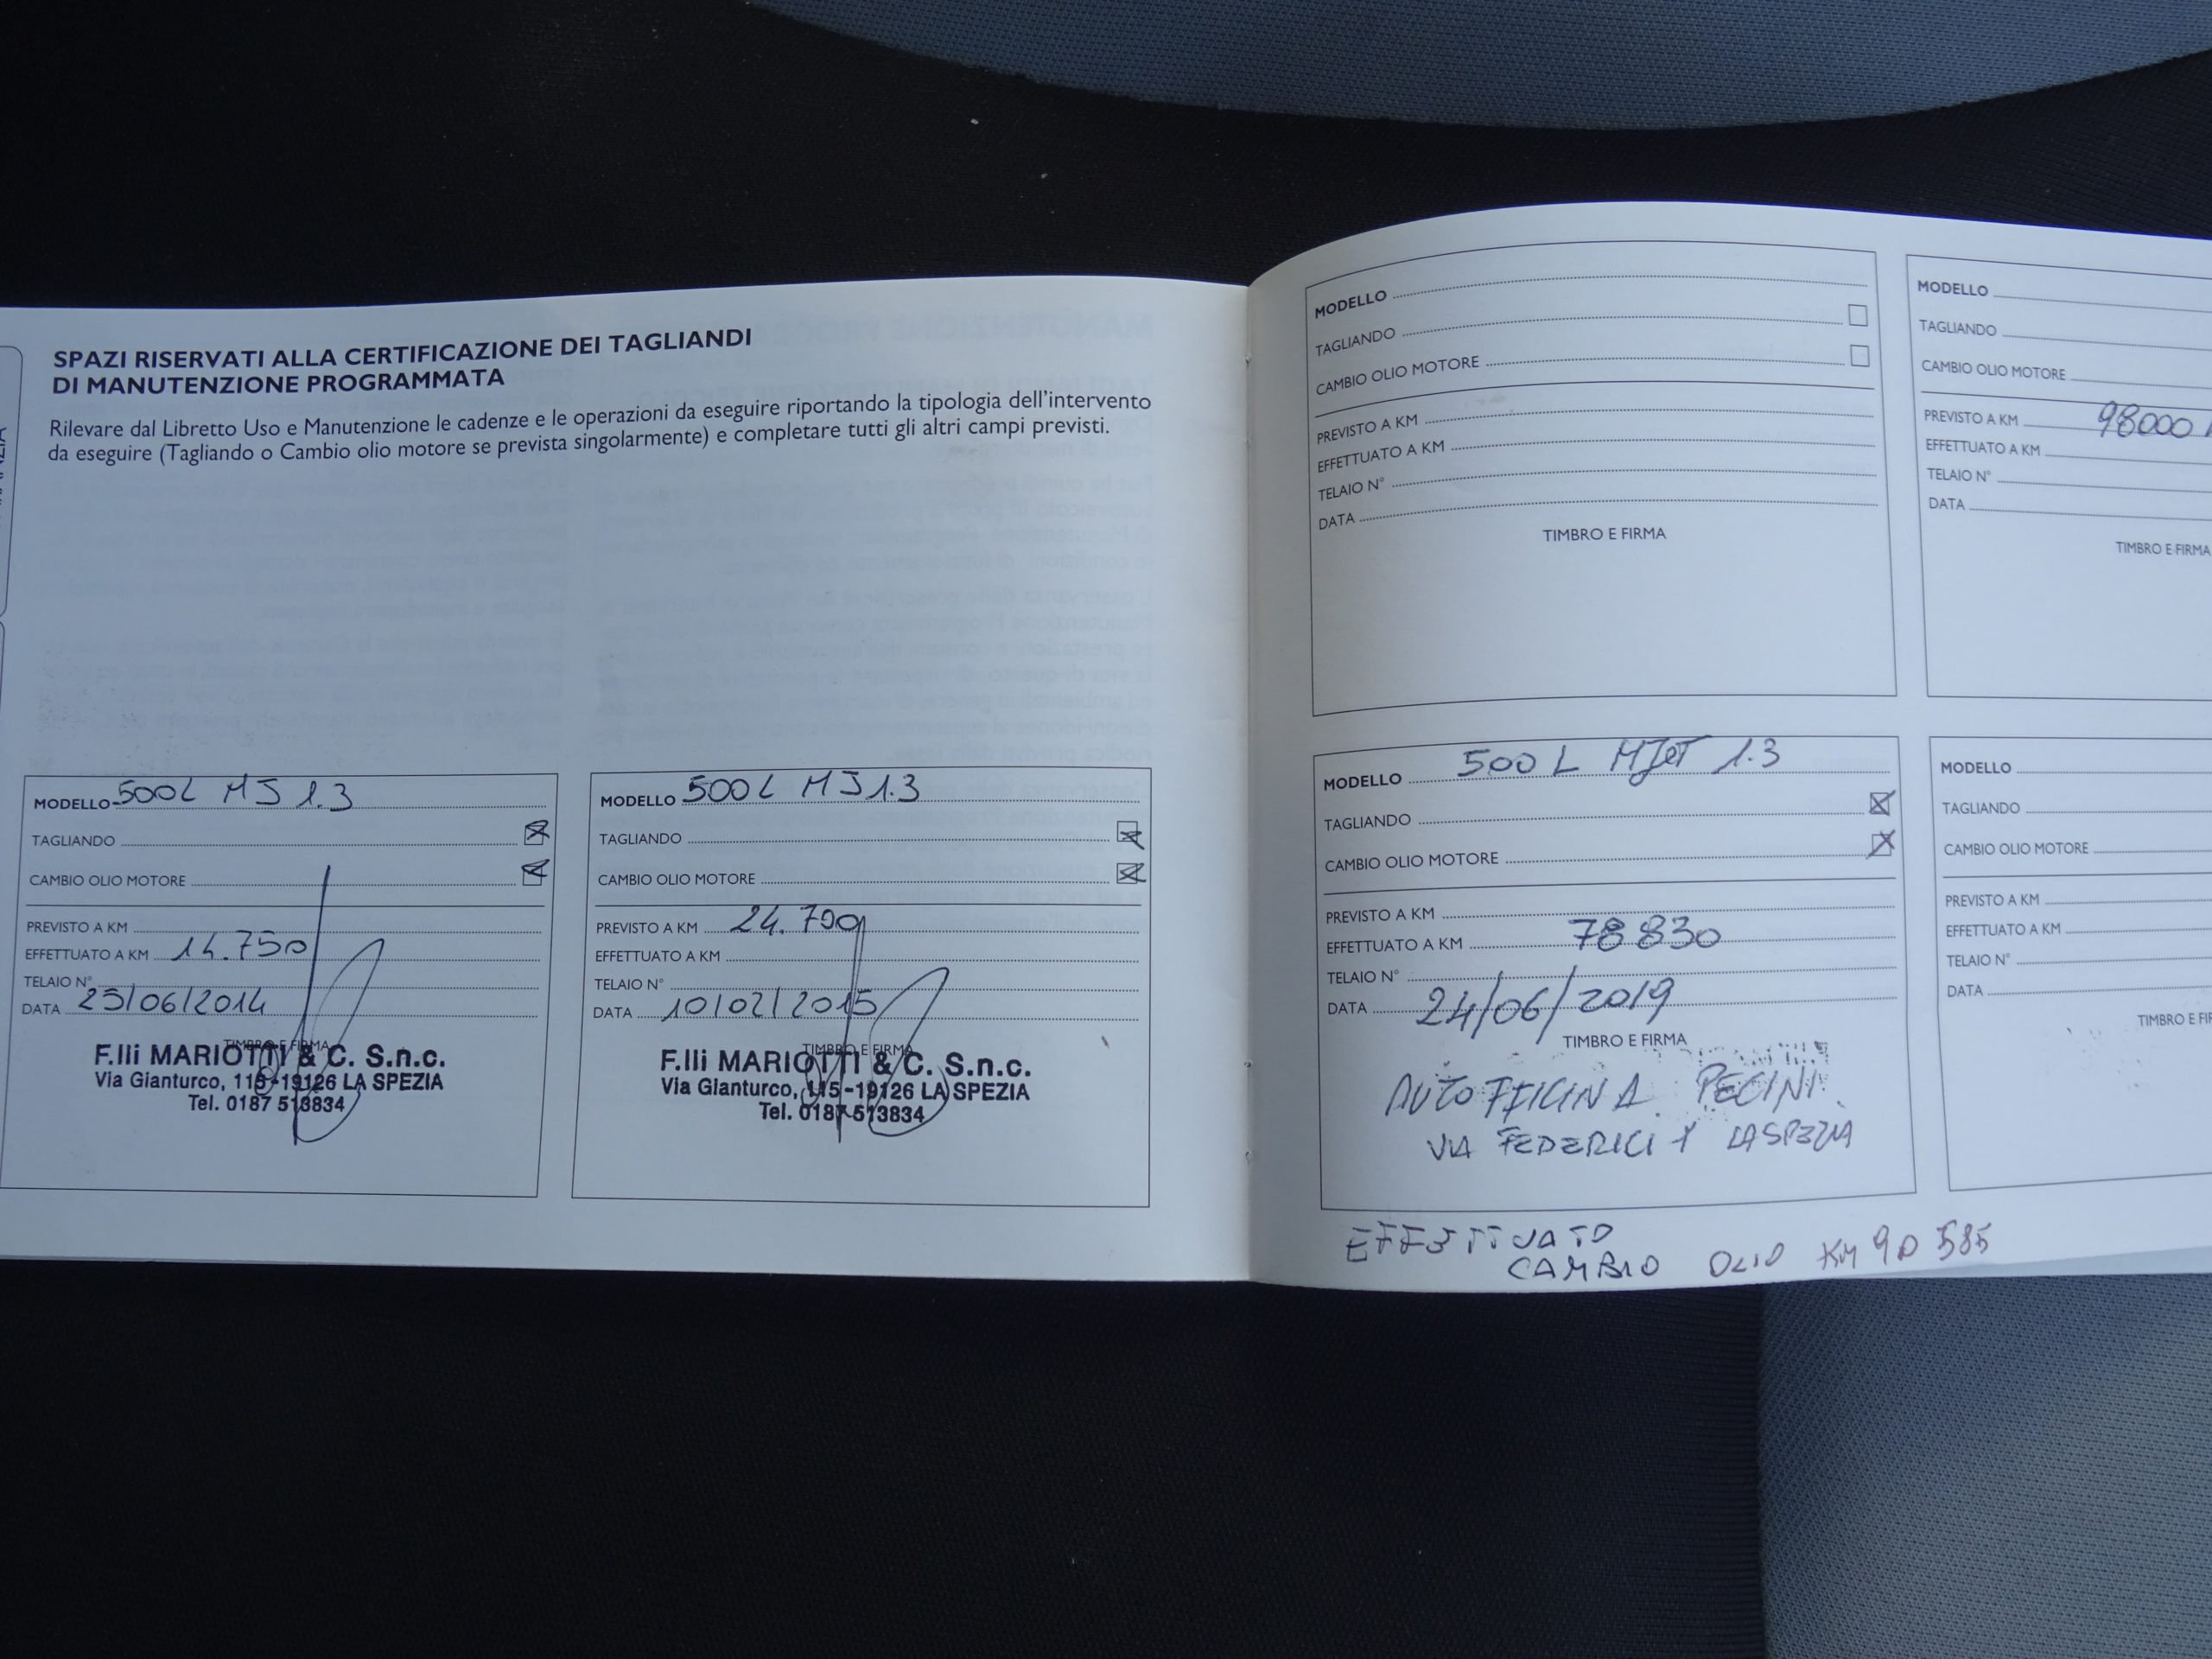 SPAZI RISERVATI ALLA CERTIFICAZIONE DEI TAGLIANDI
DI MANUTENZIONE PROGRAMMATA
Rilevare dal Libretto Uso e Manutenzione le cadenze e le operazioni da eseguire riportando la tipologia dell'intervento
da eseguire (Tagliando o Cambio olio motore se prevista singolarmente) e completare tutti gli altri campi previsti.
MODELLO 500L MJ 1.3
TAGLIANDO
CAMBIO OLIO MOTORE
PREVISTO A KM
EFFETTUATO A KM 14.750
TELAIO N°
DATA 25/06/2014
TIMBRO E FIRMA
F.lli MARIOTTI & C. S.n.c.
Via Gianturco, 115-19126 LA SPEZIA
Tel. 0187 513834
MODELLO 500L MJ 1.3
TAGLIANDO
CAMBIO OLIO MOTORE
PREVISTO A KM 24.790
EFFETTUATO A KM
TELAIO N°
DATA 10/02/2015
TIMBRO E FIRMA
F.lli MARIOTTI & C. S.n.c.
Via Gianturco, 115-19126 LA SPEZIA
Tel. 0187 513834
MODELLO
TAGLIANDO
CAMBIO OLIO MOTORE
PREVISTO A KM
EFFETTUATO A KM
TELAIO N°
DATA
TIMBRO E FIRMA
MODELLO
TAGLIANDO
CAMBIO OLIO MOTORE
PREVISTO A KM 98000
EFFETTUATO A KM
TELAIO N°
DATA
TIMBRO E FIRMA
MODELLO 500 L MJET 1.3
TAGLIANDO
CAMBIO OLIO MOTORE
PREVISTO A KM
EFFETTUATO A KM 78830
TELAIO N°
DATA 24/06/2019
TIMBRO E FIRMA
AUTOFFICINA PECINI
VIA FEDERICI LA SPEZIA
EFFETTUATO
CAMBIO OLIO KM 90 585
MODELLO
TAGLIANDO
CAMBIO OLIO MOTORE
PREVISTO A KM
EFFETTUATO A KM
TELAIO N°
DATA
TIMBRO E FI